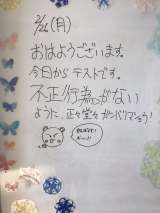 2/26(月)
おはようございます。
今日からテストです。
不正行為がない
ように、正々堂々ガンバリマショウ!